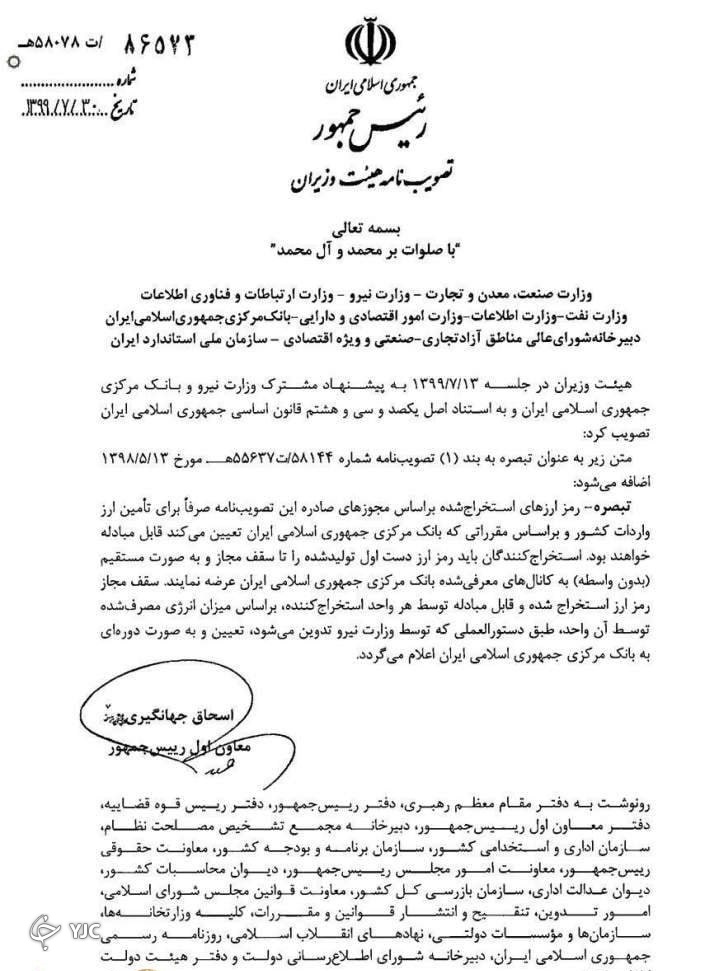 ۸۶۵۷۳ /ت ۵۸۰۷۸هـ
شماره
تاریخ ۱۳۹۹/۷/۳۰
جمهوری اسلامی ایران
رئیس جمهور
تصویب نامه هیئت وزیران
بسمه تعالی
"با صلوات بر محمد و آل محمد"
وزارت صنعت، معدن و تجارت - وزارت نیرو - وزارت ارتباطات و فناوری اطلاعات
وزارت نفت-وزارت اطلاعات-وزارت امور اقتصادی و دارایی-بانک مرکزی جمهوری اسلامی ایران
دبیرخانه شورای عالی مناطق آزاد تجاری-صنعتی و ویژه اقتصادی - سازمان ملی استاندارد ایران
هیئت وزیران در جلسه ۱۳۹۹/۷/۱۳ به پیشنهاد مشترک وزارت نیرو و بانک مرکزی
جمهوری اسلامی ایران و به استناد اصل یکصد و سی و هشتم قانون اساسی جمهوری اسلامی ایران
تصویب کرد:
متن زیر به عنوان تبصره به بند (۱) تصویب‌نامه شماره ۵۸۱۴۴/ت۵۵۶۳۷هـ مورخ ۱۳۹۸/۵/۱۳
اضافه می‌شود:
تبصره- رمز ارزهای استخراج‌شده براساس مجوزهای صادره این تصویب‌نامه صرفاً برای تأمین ارز
واردات کشور و براساس مقرراتی که بانک مرکزی جمهوری اسلامی ایران تعیین می‌کند قابل مبادله
خواهند بود. استخراج‌کنندگان باید رمز ارز دست اول تولیدشده را تا سقف مجاز و به صورت مستقیم
(بدون واسطه) به کانال‌های معرفی‌شده بانک مرکزی جمهوری اسلامی ایران عرضه نمایند. سقف مجاز
رمز ارز استخراج شده و قابل مبادله توسط هر واحد استخراج‌کننده، براساس میزان انرژی مصرف‌شده
توسط آن واحد، طبق دستورالعملی که توسط وزارت نیرو تدوین می‌شود، تعیین و به صورت دوره‌ای
به بانک مرکزی جمهوری اسلامی ایران اعلام می‌گردد.
اسحاق جهانگیری
معاون اول رییس‌جمهور
رونوشت به دفتر مقام معظم رهبری، دفتر رییس‌جمهور، دفتر رییس قوه قضاییه،
دفتر معاون اول رییس‌جمهور، دبیرخانه مجمع تشخیص مصلحت نظام،
سازمان اداری و استخدامی کشور، سازمان برنامه و بودجه کشور، معاونت حقوقی
رییس‌جمهور، معاونت امور مجلس رییس‌جمهور، دیوان محاسبات کشور،
دیوان عدالت اداری، سازمان بازرسی کل کشور، معاونت قوانین مجلس شورای اسلامی،
امور تدوین، تنقیح و انتشار قوانین و مقررات، کلیه وزارتخانه‌ها،
سازمان‌ها و مؤسسات دولتی، نهادهای انقلاب اسلامی، روزنامه رسمی
جمهوری اسلامی ایران، دبیرخانه شورای اطلاع‌رسانی دولت و دفتر هیئت دولت
YJC